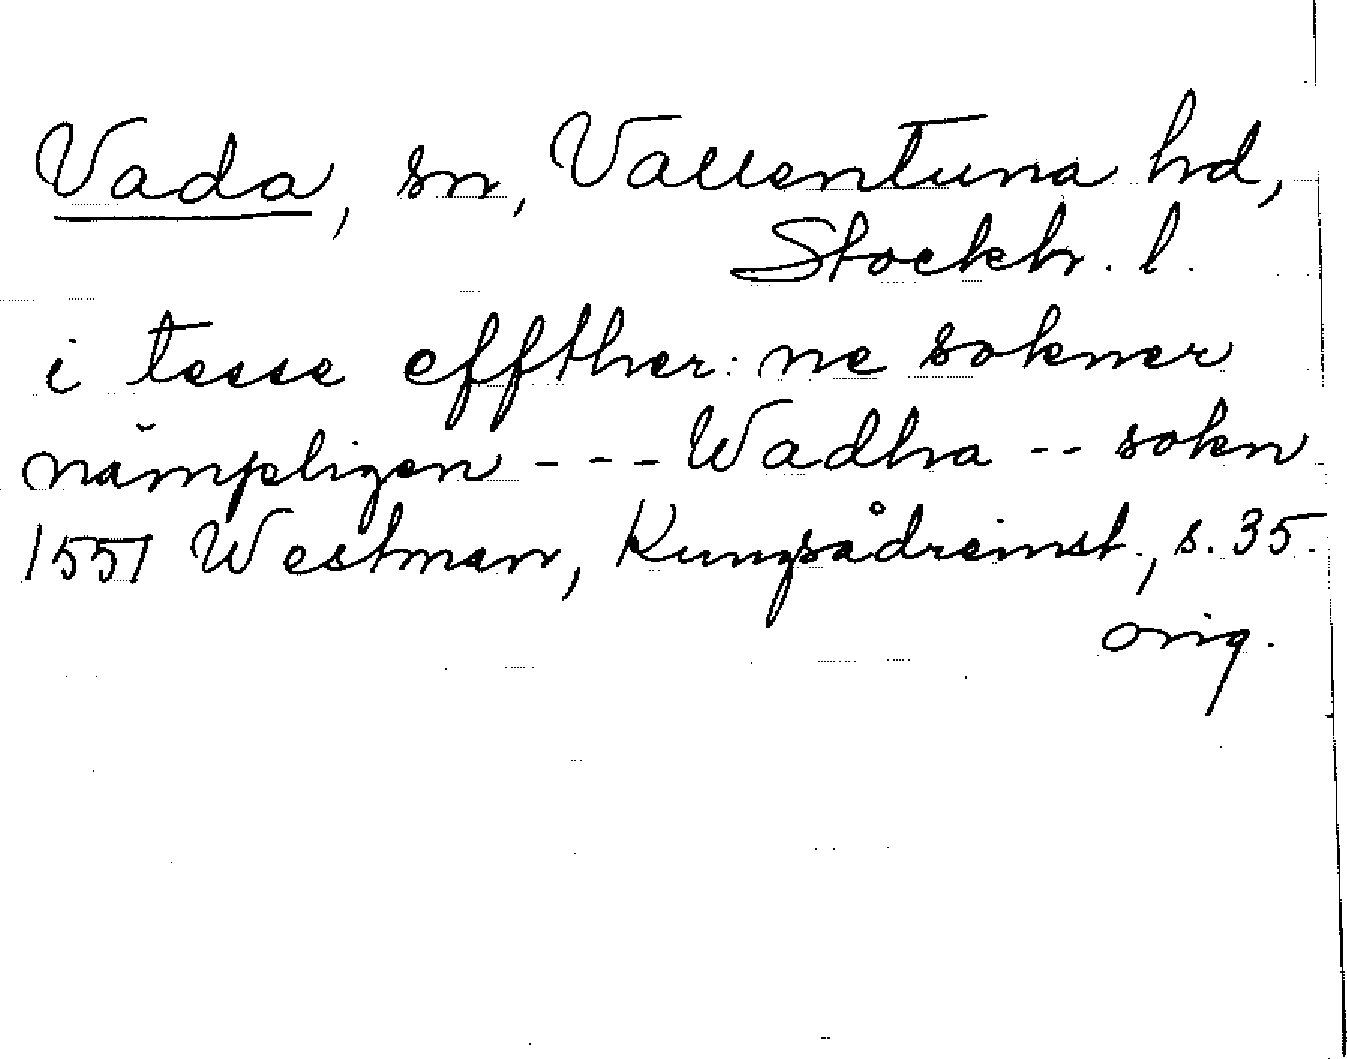 Vada, sn, Vallentuna hd,
Stockh. l.
i tesse effther: ne sokner
nämpligen - - - Wadha - - sokn
1551 Westman, Kungsådreinst., s. 35.
orig.